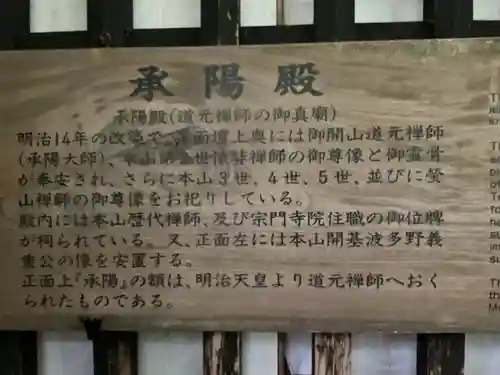 承陽殿
承陽殿(道元禅師の御真廟)
明治14年の改築で、正面壇上奥には御開山道元禅師
(承陽大師)、本山第二世懐弉禅師の御尊像と御霊骨
が奉安され、さらに本山3世、4世、5世、並びに瑩
山禅師の御尊像をお祀りしている。
殿内には本山歴代禅師、及び宗門寺院住職の御位牌
が祠られている。又、正面左には本山開基波多野義
重公の像を安置する。
正面上『承陽』の額は、明治天皇より道元禅師へおく
られたものである。